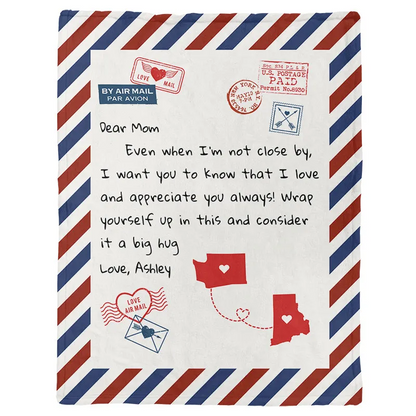 LOVE MAIL
BY AIR MAIL
PAR AVION
U.S. POSTAGE
PAID
Permit No.8930
NEW YORK
Dear Mom
Even when I'm not close by,
I want you to know that I love
and appreciate you always! Wrap
yourself up in this and consider
it a big hug
Love, Ashley
LOVE
AIR MAIL